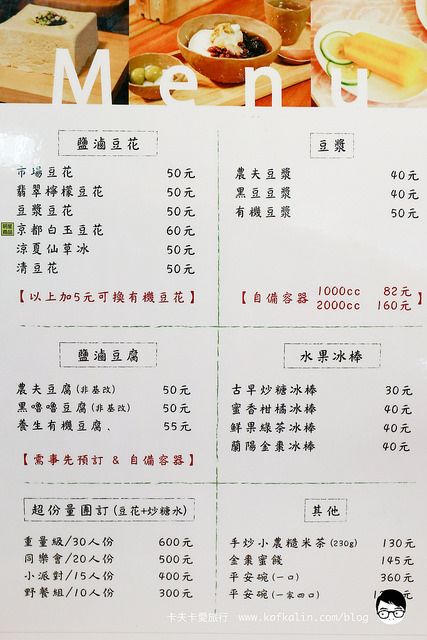 Menu
鹽滷豆花
市場豆花 50元
翡翠檸檬豆花 50元
豆漿豆花 50元
京都白玉豆花 60元
涼夏仙草冰 50元
清豆花 50元
【以上加5元可換有機豆花】
豆漿
農夫豆漿 40元
黑豆豆漿 40元
有機豆漿 50元
【自備容器 1000cc 82元
2000cc 160元】
鹽滷豆腐
農夫豆腐(非基改) 50元
黑嚕嚕豆腐(非基改) 50元
養生有機豆腐、 55元
【需事先預訂 & 自備容器】
水果冰棒
古早炒糖冰棒 30元
蜜香柑橘冰棒 40元
鮮果綠茶冰棒 40元
蘭陽金棗冰棒 40元
超份量團訂(豆花+炒糖水)
重量級/30人份 600元
同樂會/20人份 500元
小派對/15人份 400元
野餐組/10人份 300元
其他
手炒小農糙米茶(230g) 130元
金棗蜜餞 145元
平安碗(一口) 360元
平安碗(一家四口) 元
卡夫卡愛旅行 www.kafkalin.com/blog